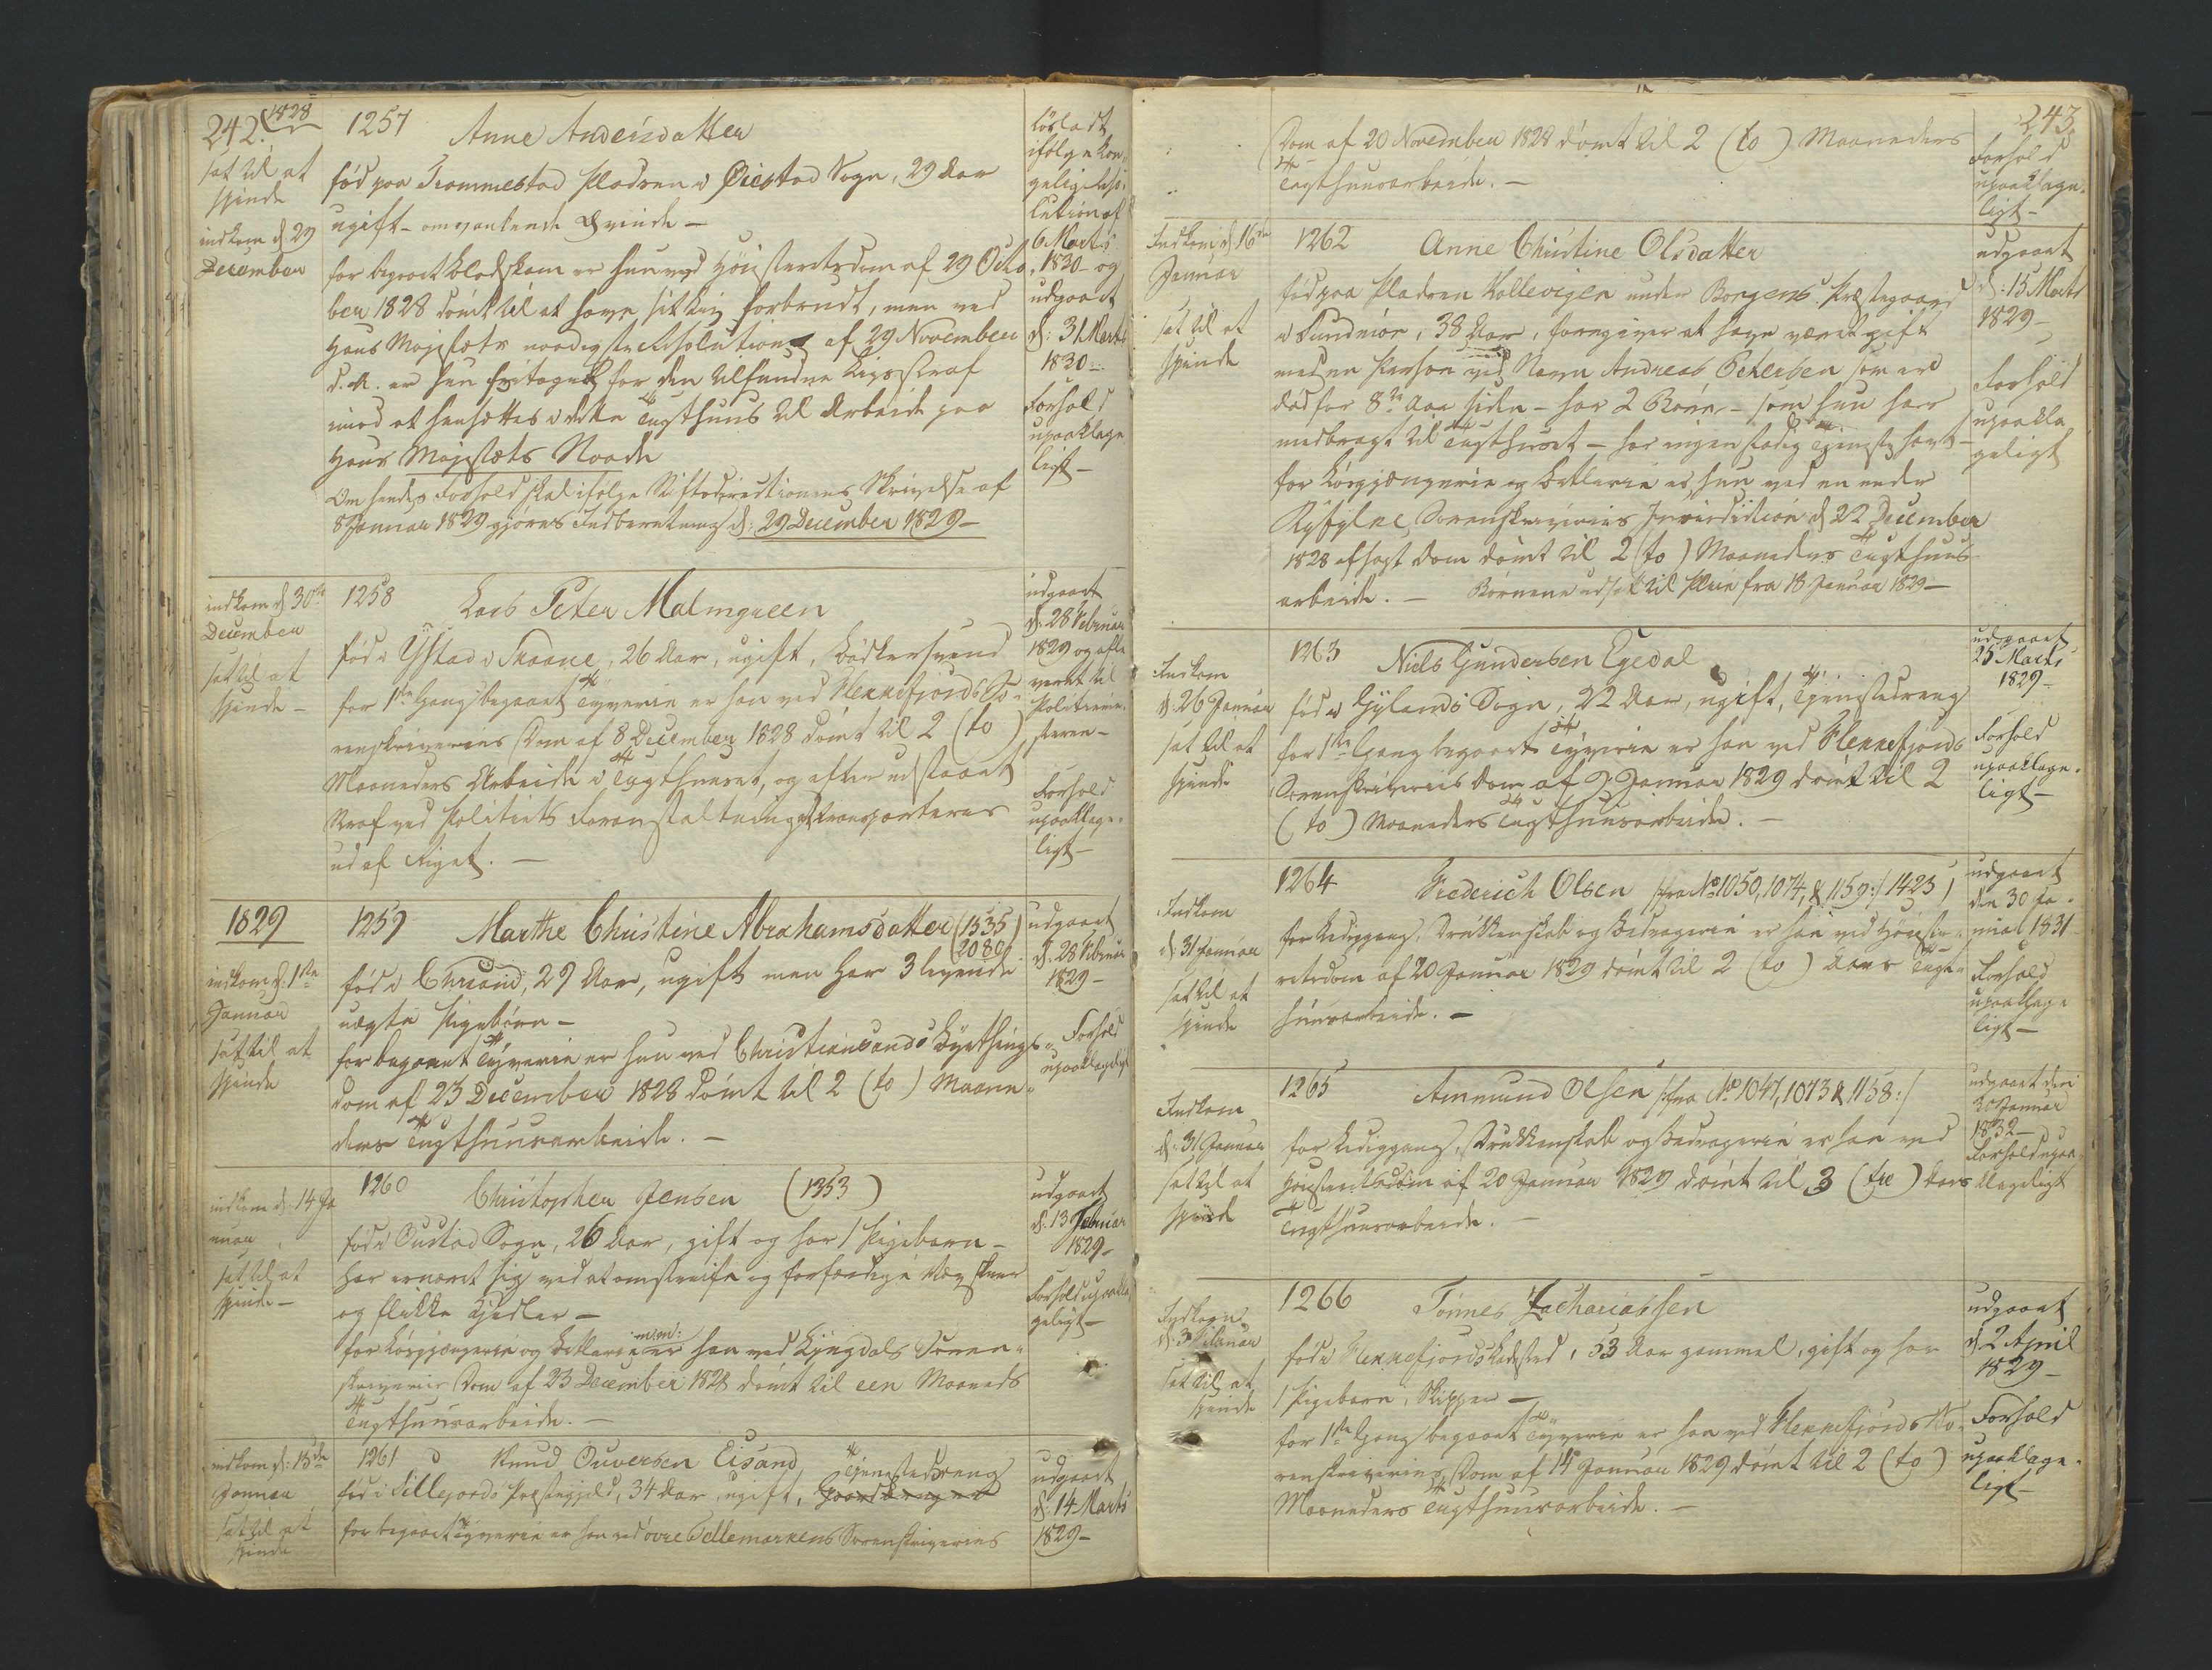 242. 1828
sat til at
spinde
indkom d. 29
December
1257 Anne Andersdatter
født paa Trommestad Pladsen i Øiestad Sogn, 29 Aar
ugift - omvankende Qvinde -
for begaaet Blodskam er hun ved Høiesteretsdom af 29 Octo
ber 1828 dömt til at have sit Liv forbrudt, men ved
Hans Majestæts naadigste Resolution af 29 November
d. A. er hun fritaget for den tilfundne Livsstraf
imod at hensættes i dette Tugthuus til Arbeide paa
Hans Majestæts Naade
Om hendes Forhold skal ifølge Stiftsdirectionens Skrivelse af
8 Januar 1829 gjøres Indberetning d: 29 December 1829 -
løsladt
ifølge Kon-
gelig Reso-
lution af
6 Marts
1830 - og
udgaaet
d: 31 Marts
1830 -
Forhold
upaaklage
ligt -
indkom d. 30te
December
sat til at
spinde -
1258 Lars Peter Malmgreen
fød i Ystad i Skaane, 26 Aar, ugift, Bødkersvend
for 1ste Gang begaaet Tyverie er han ved Flekkefjords So-
renskriveries Dom af 8 December 1828 dömt til 2 (to)
Maaneders Arbeide i Tugthuuset, og efter udstaaet
Straf ved Politiets Foranstaltning at transporteres
ud af Riget. -
udgaaet
d. 28 Februar
1829 og afle
veret til
Politieme-
steren -
Forhold
upaaklage-
ligt -
1829
indkom d: 1ste
Januar
sat til at
spinde
1259 Marthe Christine Abrahamsdatter (1535)
2080
fød i Chrsand, 29 Aar, ugift men har 3 levende
uægte Pigebørn -
for begaaet Tyverie er hun ved Christiansands Byethings-
dom af 23 December 1828 dömt til 2 (to) Maane-
ders Tugthuusarbeide. -
udgaaet
d. 28 Februar
1829 -
Forhold
upaaklageligt
indkom d. 14 Ja
nuar
sat til at
spinde -
1260 Christopher Jensen (1353)
fød i Bustad Sogn, 26 Aar, gift og har 1 Pigebarn -
har ernæret sig ved at omstreife og forfærdige Vævskeer
og flikke Kjedler -
for Løsgjængerie og Betlerie m:m: er han ved Lyngdals Soren-
skriveries Dom af 23 December 1828 dömt til een Maaneds
Tugthuusarbeide. -
udgaaet
d. 13 Februar
1829 -
Forhold upaakla
geligt -
indkom d: 15de
Januar
sat til at
spinde
1261 Knud Ouversen Eisand
fød i Sillejords Præstegjeld, 34 Aar, ugift, Tjenestedreng
for begaaet Tyverie er han ved øvre Tellemarkens Sorenskriveries
udgaaet
d. 14 Marts
1829 -
243
Dom af 20 November 1828 dömt til 2 (to) Maaneders
Tugthuusarbeide. -
Forhold
upaaklage-
ligt -
Indkom d. 16de
Januar
sat til at
spinde
1262 Anne Christine Olsdatter
fød paa Pladsen Kollevigen under Borgens Præstegaard
i Sundmör, 38 Aar, foregiver at have været gift
med en Person ved Navn Andreas Petersen som er
død for 8te Aar siden - har 2 Børn - som hun har
medbragt til Tugthuset - har ingen stadig Tjeneste havt -
for Løsgjængerie og Betlerie er hun ved en under
Ryfylke Sorenskriveries Jurisdiction d. 22 December
1828 afsagt Dom dömt til 2 (to) Maaneders Tugthuus
arbeide. - Børnene udsat til Pleie fra 18 Januar 1829 -
udgaaet
d: 15 Marts
1829 -
Forhold
upaakla
geligt
Indkom
d. 26 Januar
sat til at
spinde
1263 Niels Gundersen Egedal
fød i Gylands Sogn, 22 Aar, ugift, Tjenestedreng
for 1ste Gang begaaet Tyverie er han ved Flekkefjords
Sorenskriveries Dom af 9 Januar 1829 dömt til 2
(to) Maaneders Tugthuusarbeide. -
udgaaet
25 Marts
1829 -
Forhold
upaaklage-
ligt -
Indkom
d. 31 Januar
sat til at
spinde
1264 Frederich Olsen /:fra No 1050, 1074, & 1159:/ 1423)
for Lediggang, Drukkenskab og Bedragerie er han ved Høieste-
retsdom af 20 Januar 1829 dömt til 2 (to) Aars Tugt-
huusarbeide. -
udgaaet
den 30 Ja-
nuar 1831
Forhold
upaaklage
ligt -
Indkom
d. 31 Januar
sat til at
spinde
1265 Ammund Olsen /:fra No 1047, 1073 & 1158:/
for Lediggang, Drukkenskab og Bedragerie er han ved
Høiesteretsdom af 20 Januar 1829 dömt til 3 (tre) Aars
Tugthuusarbeide. -
udgaaet den
30 Januar
1832 -
Forhold upaa
klageligt
Indkom
d. 3 Februar
sat til at
spinde
1266 Tönnes Zachariassen
fød i Flekkefjords Ladested, 53 Aar gammel, gift og har
1 Pigebarn, Skipper -
for 1ste Gang begaaet Tyverie er han ved Flekkefjords So-
renskriveries Dom af 14 Januar 1829 dömt til 2 (to)
Maaneders Tugthuusarbeide. -
udgaaet
d. 2 April
1829 -
Forhold
upaaklage-
ligt -